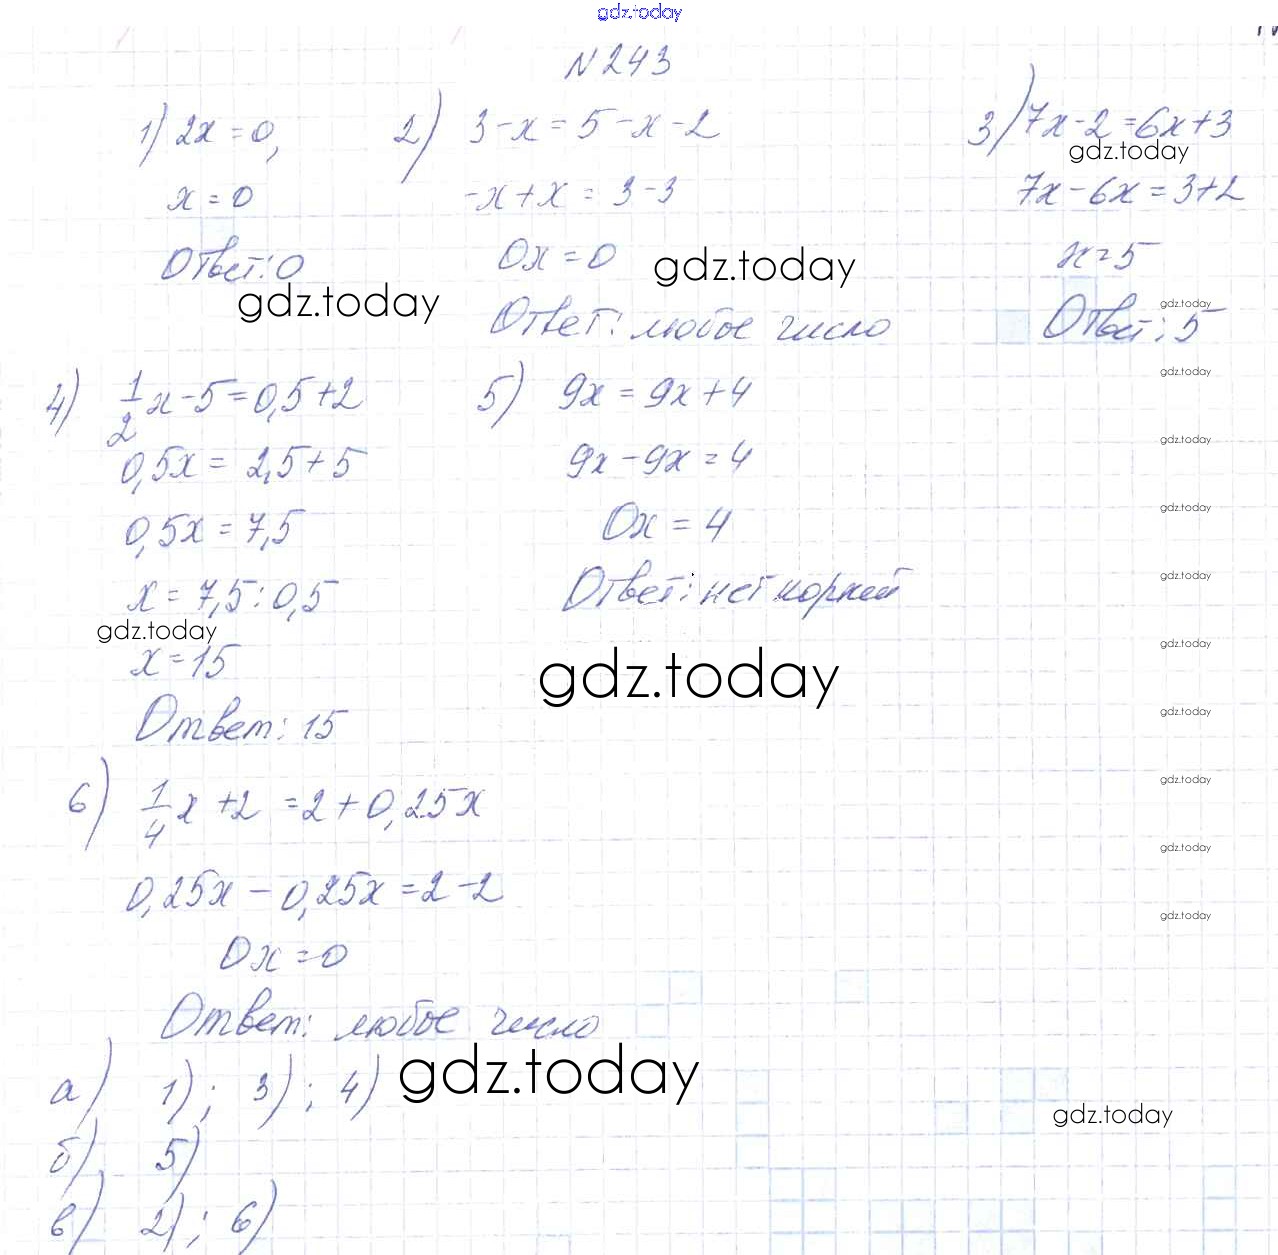 gdz.today
N 243
1) 2x = 0,
x = 0
Ответ: 0
gdz.today
2) 3 - x = 5 - x - 2
-x + x = 3 - 3
0x = 0
gdz.today
Ответ: любое число
3) 7x - 2 = 6x + 3
gdz.today
7x - 6x = 3 + 2
x = 5
gdz.today
Ответ: 5
gdz.today
4) 1/2 x - 5 = 0,5 + 2
0,5x = 2,5 + 5
0,5x = 7,5
x = 7,5 : 0,5
gdz.today
x = 15
Ответ: 15
5) 9x = 9x + 4
gdz.today
9x - 9x = 4
gdz.today
0x = 4
gdz.today
Ответ: нет корней
gdz.today
gdz.today
gdz.today
6) 1/4 x + 2 = 2 + 0,25x
gdz.today
gdz.today
0,25x - 0,25x = 2 - 2
gdz.today
0x = 0
Ответ: любое число
а) 1); 3); 4)
gdz.today
gdz.today
б) 5)
в) 2); 6)